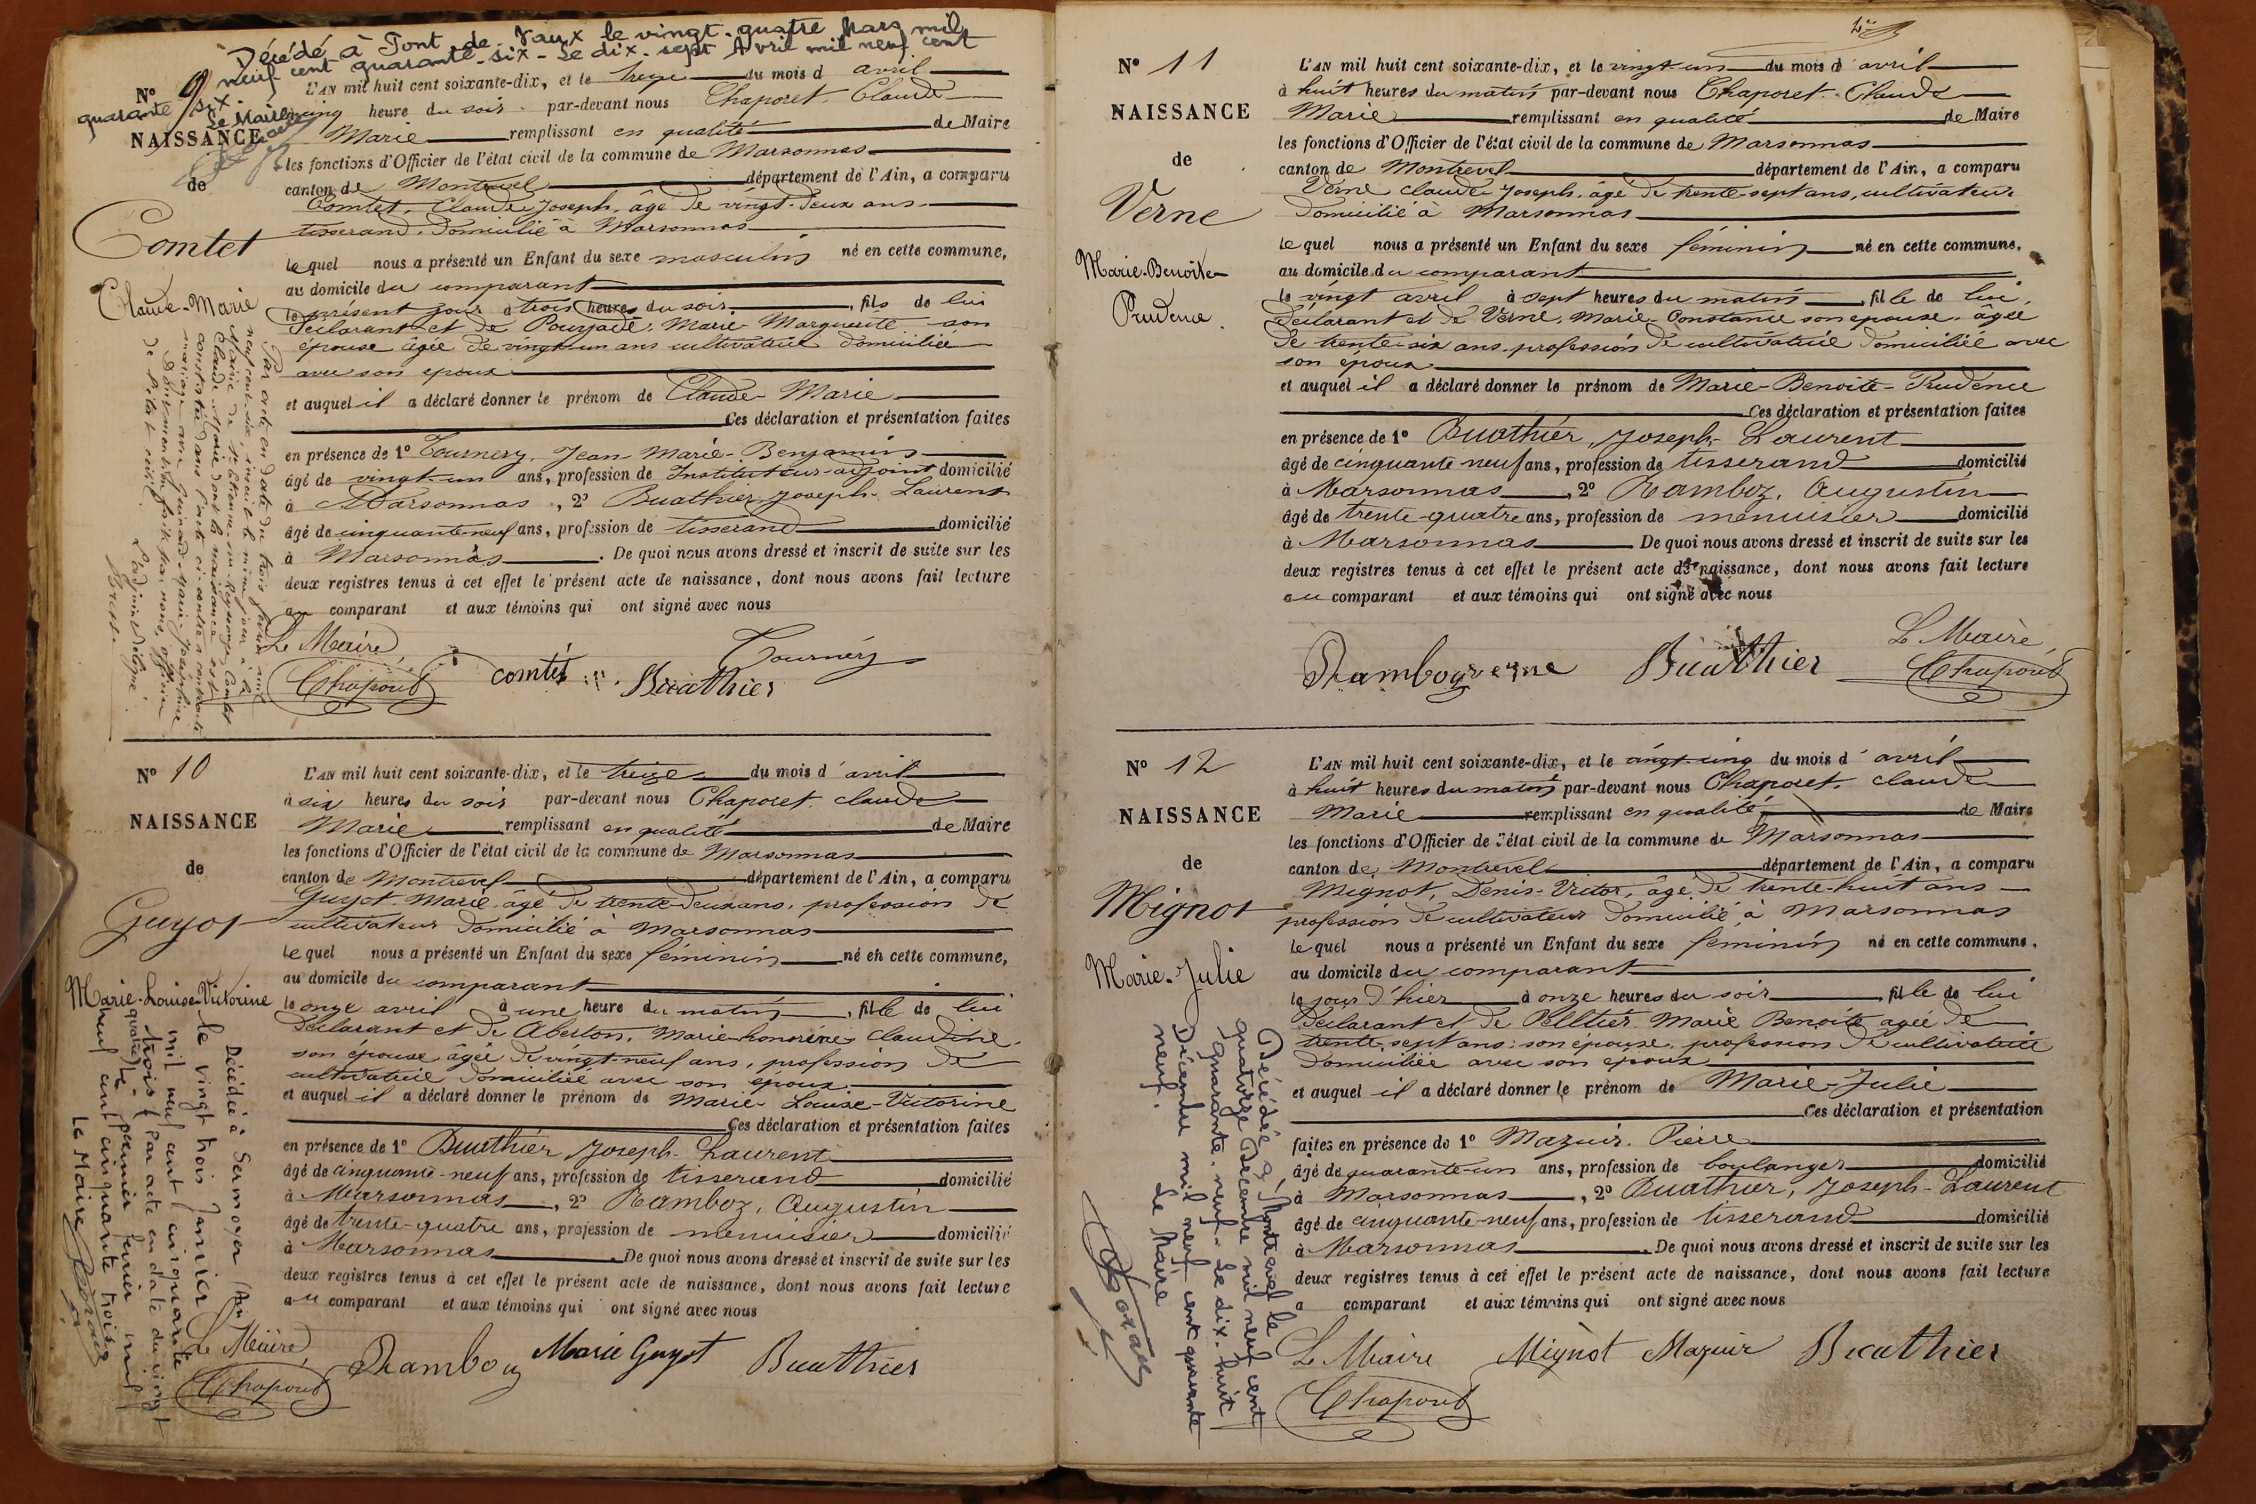 Décédé à Pont de Vaux le vingt-quatre Mars mil
neuf cent quarante-six - Le dix-sept Avril mil neuf cent
quarante six.
Le Maire
N° 9
NAISSANCE
de
Comtet
Claude-Marie
Par acte en date du trois février mil
neuf cent six, inscrit le même jour à la
Mairie de St Etienne-sur-Reyssouze, Comtet
Claude Marie dont la naissance est
constatée dans l'acte ci-contre a contracté
mariage avec Guinard Marie Joséphine
de l'état civil.
L'AN mil huit cent soixante-dix, et le treize du mois d avril
à cinq heure du soir par-devant nous Chaporet Claude
Marie remplissant en qualité de Maire
les fonctions d'Officier de l'état civil de la commune de Marsonnas
canton de Montrevel département de l'Ain, a comparu
Comtet, Claude Joseph, âgé de vingt-deux ans
tisserand, domicilié à Marsonnas
le quel nous a présenté un Enfant du sexe masculin né en cette commune,
au domicile du comparant
le présent jour à trois heures du soir, fils de lui
déclarant et de Poujade, Marie Marguerite son
épouse âgée de vingt-un ans cultivatrice domiciliée
avec son époux
et auquel il a déclaré donner le prénom de Claude-Marie
Ces déclaration et présentation faites
en présence de 1° Tournery, Jean-Marie-Benjamin
âgé de vingt-un ans, profession de Instituteur-adjoint domicilié
à Marsonnas, 2° Buathier Joseph-Laurent
âgé de cinquante-neuf ans, profession de tisserand domicilié
à Marsonnas. De quoi nous avons dressé et inscrit de suite sur les
deux registres tenus à cet effet le présent acte de naissance, dont nous avons fait lecture
au comparant et aux témoins qui ont signé avec nous
Le Maire
Chaporet comtet Buathier Tournery
N° 10
NAISSANCE
de
Guyot
Marie-Louise-Victorine
Décédée à Sermoyer (Ain)
le vingt trois Janvier
mil neuf cent cinquante
trois (Par acte en date du vingt
quatre). Le premier février mil
neuf cent cinquante trois.
Le Maire
L'AN mil huit cent soixante-dix, et le treize du mois d'avril
à six heures du soir par-devant nous Chaporet claude
Marie remplissant en qualité de Maire
les fonctions d'Officier de l'état civil de la commune de Marsonnas
canton de Montrevel département de l'Ain, a comparu
Guyot Marie, âgé de trente-deux ans, profession de
cultivateur domicilié à Marsonnas
le quel nous a présenté un Enfant du sexe féminin né en cette commune,
au domicile du comparant
le onze avril à une heure du matin, fille de lui
déclarant et de Aberton, Marie-honorine claudine
son épouse âgée de vingt-neuf ans, profession de
cultivatrice domiciliée avec son époux
et auquel il a déclaré donner le prénom de Marie-Louise-Victorine
Ces déclaration et présentation faites
en présence de 1° Buathier Joseph-Laurent
âgé de cinquante-neuf ans, profession de tisserand domicilié
à Marsonnas, 2° Ramboz, Augustin
âgé de trente-quatre ans, profession de menuisier domicilié
à Marsonnas. De quoi nous avons dressé et inscrit de suite sur les
deux registres tenus à cet effet le présent acte de naissance, dont nous avons fait lecture
au comparant et aux témoins qui ont signé avec nous
Le Maire
Chaporet Ramboz Marie Guyot Buathier
N° 11
NAISSANCE
de
Verne
Marie-Benoite-
Prudence
L'AN mil huit cent soixante-dix, et le vingt-un du mois d'avril
à huit heures du matin par-devant nous Chaporet Claude
Marie remplissant en qualité de Maire
les fonctions d'Officier de l'état civil de la commune de Marsonnas
canton de Montrevel département de l'Ain, a comparu
Verne claude Joseph, âgé de trente-sept ans, cultivateur
domicilié à Marsonnas
le quel nous a présenté un Enfant du sexe féminin né en cette commune,
au domicile du comparant
le vingt avril à sept heures du matin, fille de lui,
déclarant et de Verne, Marie-Constance son épouse, âgée
de trente-six ans, profession de cultivatrice domiciliée avec
son époux
et auquel il a déclaré donner le prénom de Marie-Benoite-Prudence
Ces déclaration et présentation faites
en présence de 1° Buathier, Joseph-Laurent
âgé de cinquante neuf ans, profession de tisserand domicilié
à Marsonnas, 2° Ramboz, Augustin
âgé de trente-quatre ans, profession de menuisier domicilié
à Marsonnas De quoi nous avons dressé et inscrit de suite sur les
deux registres tenus à cet effet le présent acte de naissance, dont nous avons fait lecture
au comparant et aux témoins qui ont signé avec nous
Le Maire
Ramboz verne Buathier Chaporet
N° 12
NAISSANCE
de
Mignot
Marie-Julie
Décédée à Montrevel le
quatorze Décembre mil neuf cent
quarante-neuf. Le dix-huit
Décembre mil neuf cent quarante
neuf.
Le Maire
L'AN mil huit cent soixante-dix, et le vingt-cinq du mois d'avril
à huit heures du matin par-devant nous Chaporet claude
Marie remplissant en qualité de Maire
les fonctions d'Officier de l'état civil de la commune de Marsonnas
canton de Montrevel département de l'Ain, a comparu
Mignot, Denis-Victor, âgé de trente-huit ans
profession de cultivateur domicilié à Marsonnas
le quel nous a présenté un Enfant du sexe féminin né en cette commune,
au domicile du comparant
le jour d'hier à onze heures du soir, fille de lui
déclarant et de Pelltier Marie Benoite agée de
trente-sept ans, son épouse, profession de cultivatrice
domiciliée avec son époux
et auquel il a déclaré donner le prénom de Marie-Julie
Ces déclaration et présentation
faites en présence de 1° Mazuir Pierre
âgé de quarante-un ans, profession de boulanger domicilié
à Marsonnas, 2° Buathier, Joseph-Laurent
âgé de cinquante-neuf ans, profession de tisserand domicilié
à Marsonnas. De quoi nous avons dressé et inscrit de suite sur les
deux registres tenus à cet effet le présent acte de naissance, dont nous avons fait lecture
a comparant et aux témoins qui ont signé avec nous
Le Maire Mignot Mazuir Buathier
Chaporet